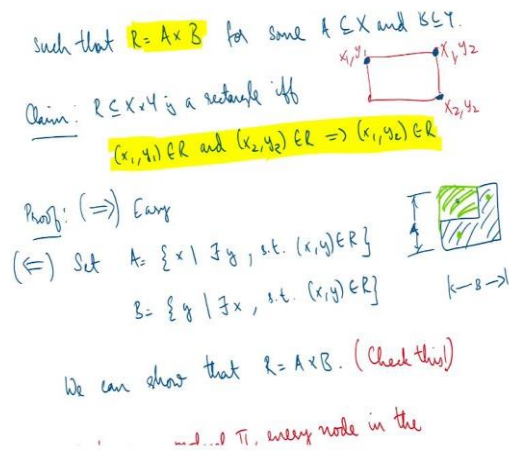 such that R = A × B for some A ⊆ X and B ⊆ Y.
x₁,y₁ x₁,y₂
Claim: R ⊆ X×Y is a rectangle iff
x₂,y₂
(x₁,y₁) ∈ R and (x₂,y₂) ∈ R ⇒ (x₁,y₂) ∈ R
Proof: (⇒) Easy
(⇐) Set A = {x | ∃y, s.t. (x,y) ∈ R}
A
B = {y | ∃x, s.t. (x,y) ∈ R}
B
We can show that R = A×B. (Check this!)
Π, every node in the